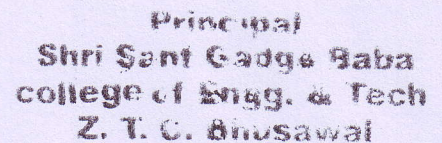 Principal
Shri Sant Gadge Baba
college of Engg. & Tech
Z. T. C. Bhusawal